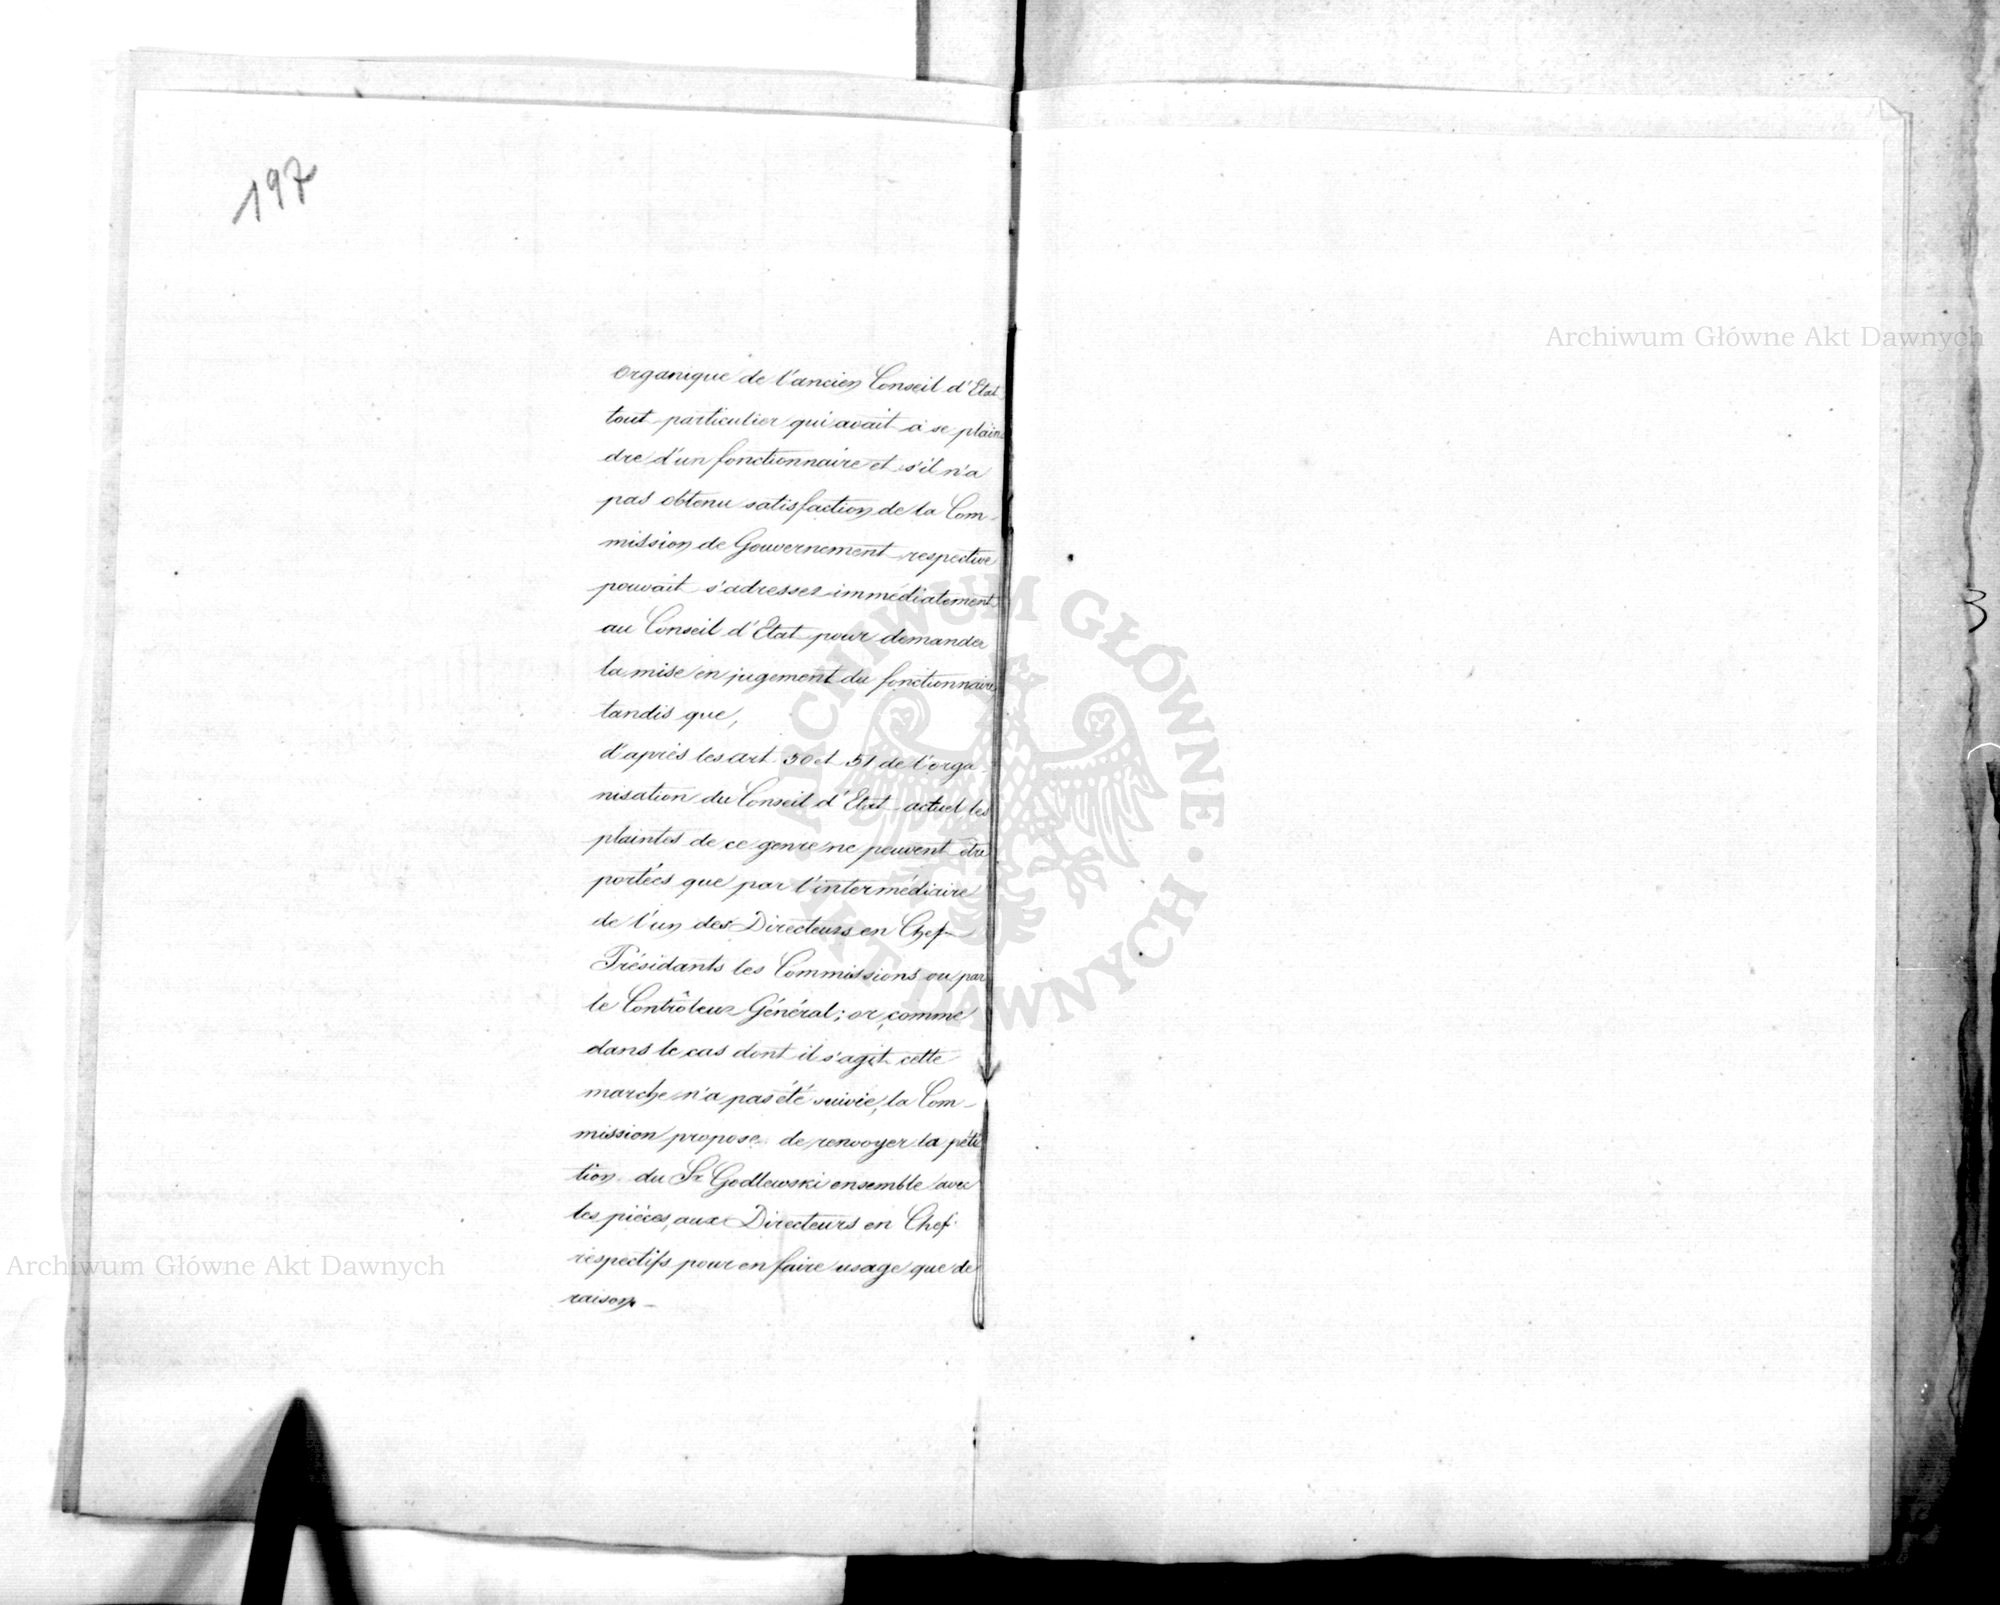 197
organique de l'ancien Conseil d'Etat
tout particulier qui avait à se plain
dre d'un fonctionnaire et s'il n'a
pas obtenu satisfaction de la Com-
mission de Gouvernement respective
pouvait s'adresser immédiatement
au Conseil d'Etat pour demander
la mise en jugement du fonctionnaire
tandis que,
d'après les art. 50 et 51 de l'orga-
nisation du Conseil d'Etat actuel les
plaintes de ce genre ne peuvent être
portées que par l'intermédiaire
de l'un des Directeurs en Chef
Présidants les Commissions ou par
le Contrôleur Général; or, comme
dans le cas dont il s'agit cette
marche n'a pas été suivie, la Com-
mission propose de renvoyer la péti
tion du Sr Godlewski ensemble avec
les pièces, aux Directeurs en Chef
respectifs pour en faire usage que de
raison –
Archiwum Główne Akt Dawnych
Archiwum Główne Akt Dawnych
ARCHIWUM GŁÓWNE AKT DAWNYCH
3